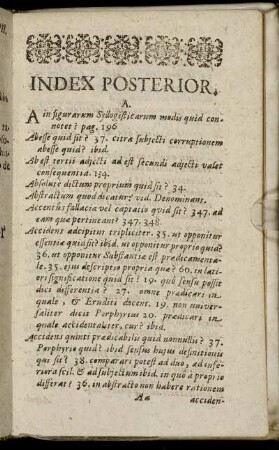 INDEX POSTERIOR,
A.
A in figurarum Syllogisticarum modis quid con-
notet? pag. 196
Abesse quid sit? 37. citra subjecti corruptionem
abesse quid? ibid.
Ab est tertii adjecti ad est secundi adjecti valet
consequentia. 134.
Absolutè dictum propriùm quid sit? 34.
Abstractum quod dicatur? vid. Denominans.
Accentûs fallacia vel captatio qvid sit? 347. ad
eam quæ pertineant? 347. 348.
Accidens accipitur tripliciter. 35. ut opponitur
essentiæ quid sit? ibid. ut opponitur proprio quid?
36. ut opponitur Substantiæ est prædicamenta-
le. 35. ejus descriptio propria quæ? 60. in latio-
ri significatione quid sit? 19. quô sensu possit
dici differentia? 27. omne prædicari in
quale, & Eruditi docent. 19. non univer-
saliter dicit Porphyrius 20. prædicari in
quale accidentaliter, cur? ibid.
Accidens quinti prædicabilis quid nonnullis? 37.
Porphyrio quid? ibid sensus hujus definitionis
qvi sit? 38. comparari potest ad duo, ad infe-
riora scil. & ad subjectum ibid. in quô à proprio
differat? 36. in abstracto non habere rationem
Aa acciden-